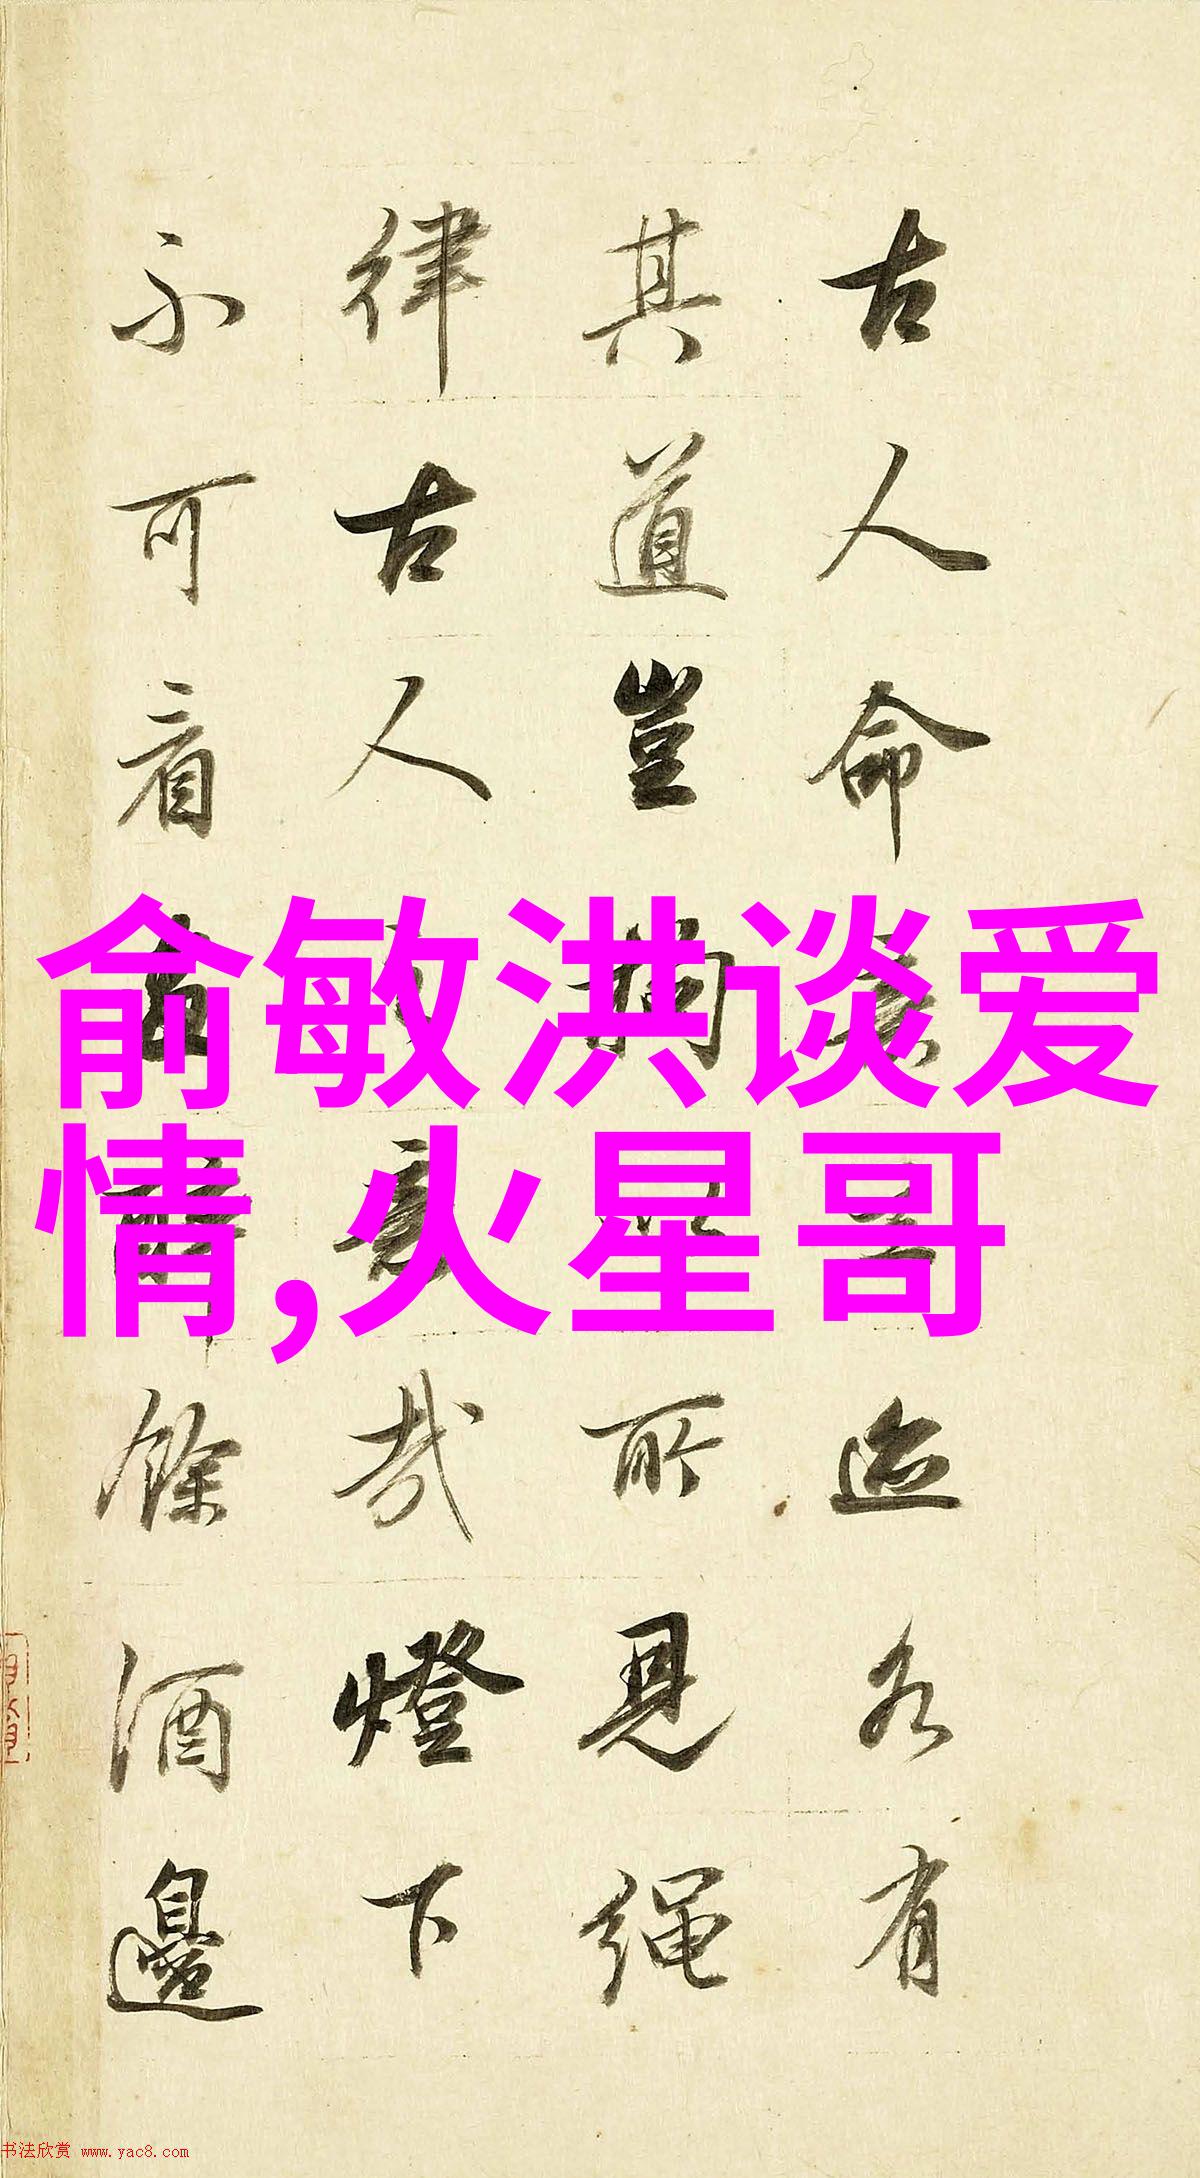 古人命迹各有
其道豈拘以所見繩
律古人意哉燈下
不可看餘酒邊
俞敏洪谈爱
情,火星哥
书法欣赏 www.yac8.com